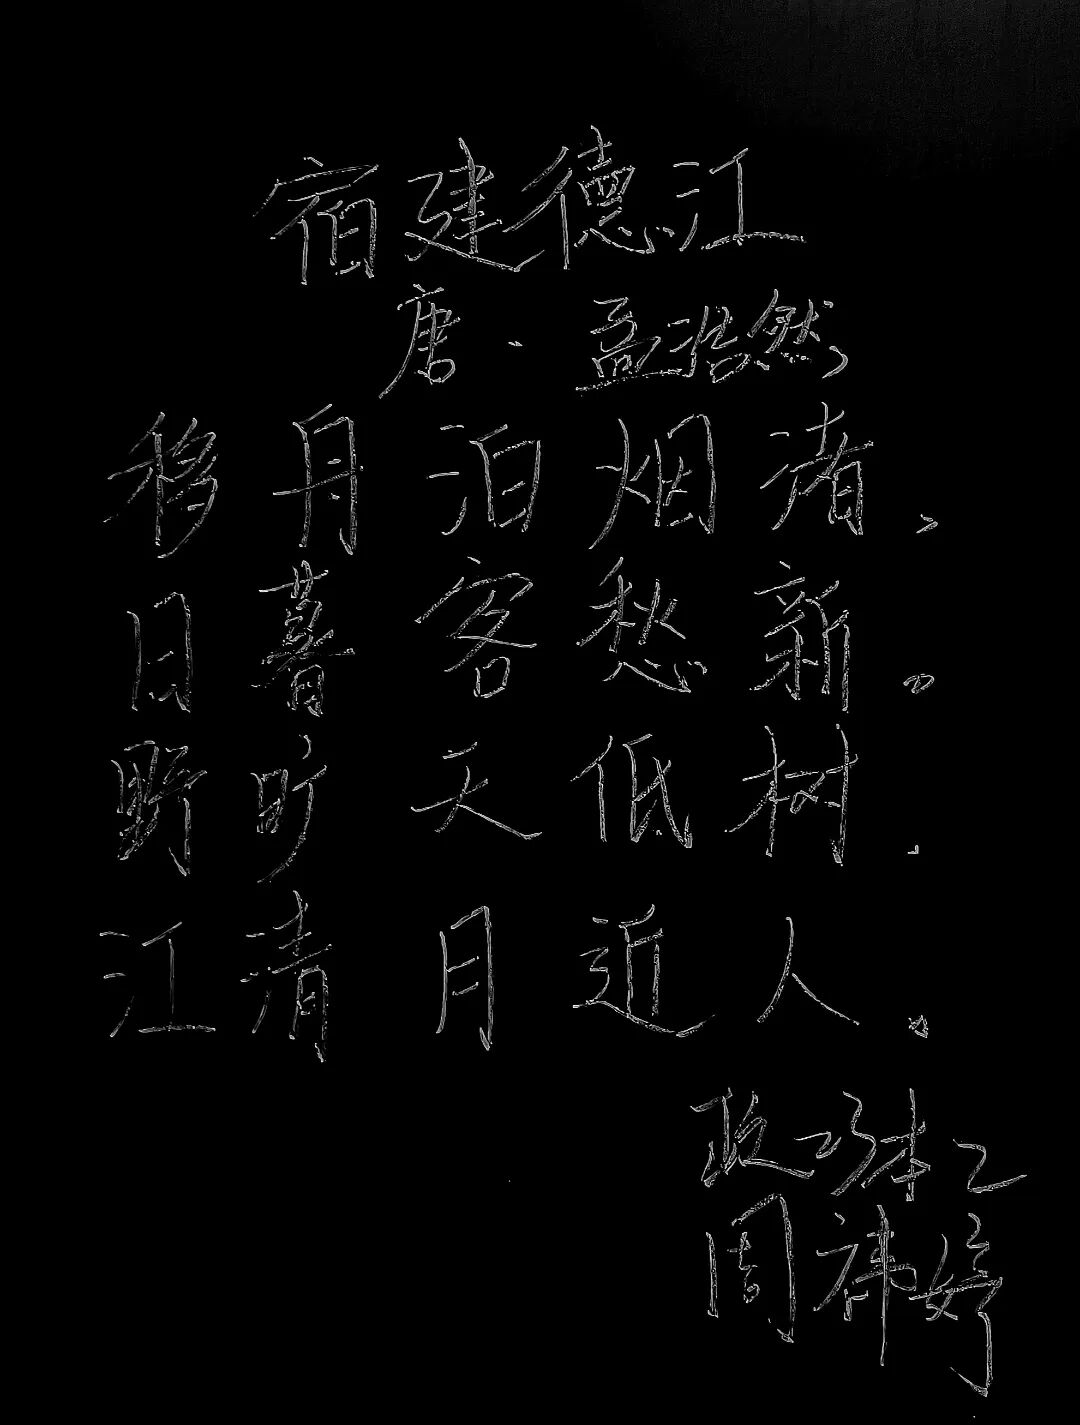 宿建德江
唐·孟浩然
移舟泊烟渚,
日暮客愁新。
野旷天低树,
江清月近人。
周祎婷